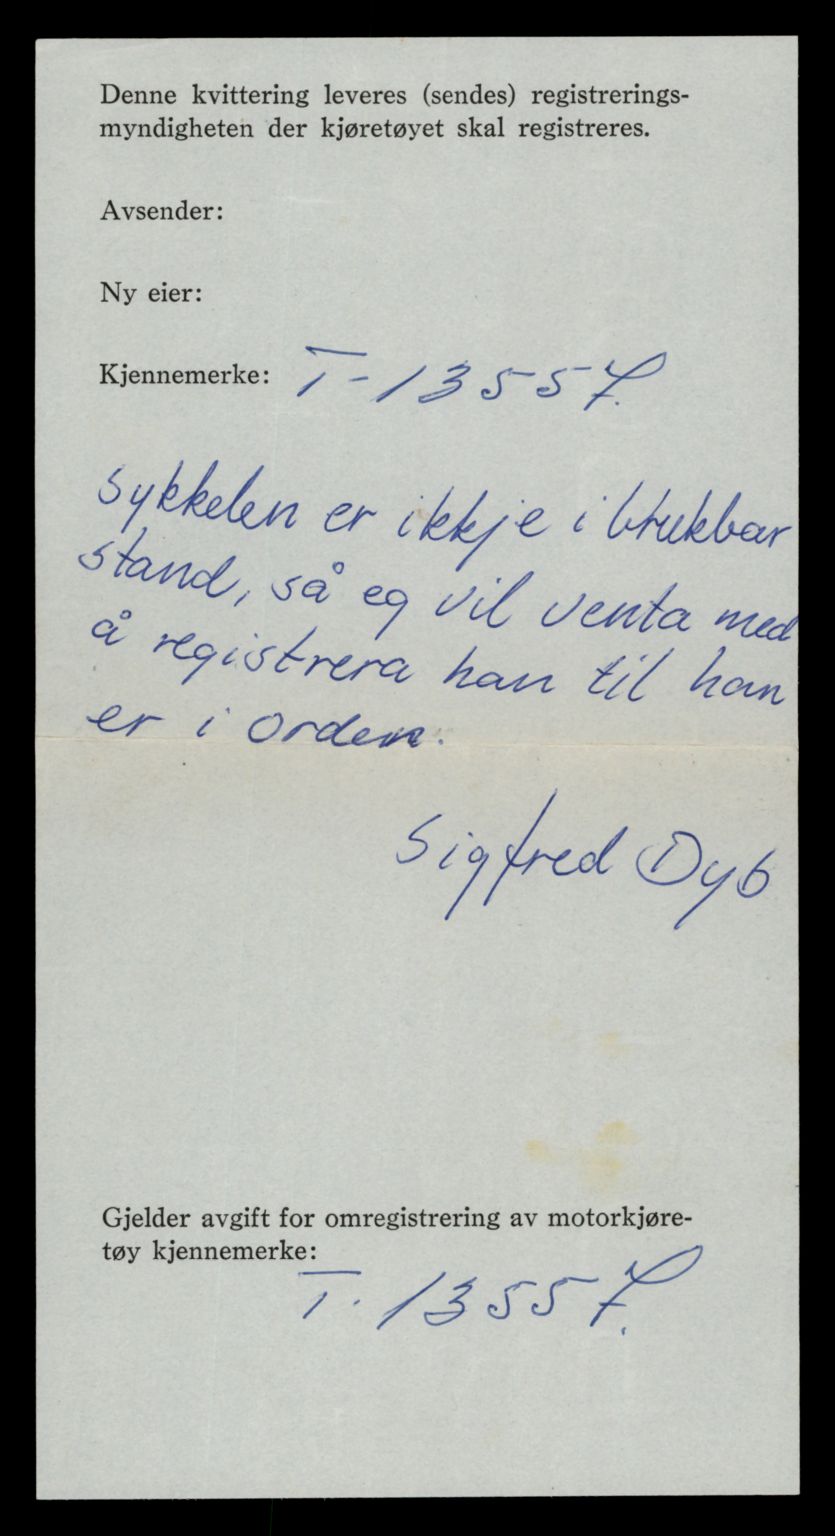 Denne kvittering leveres (sendes) registrerings-
myndigheten der kjøretøyet skal registreres.
Avsender:
Ny eier:
Kjennemerke: T-13557.
Sykkelen er ikkje i brukbar
stand, så eg vil venta med
å registrera han til han
er i orden.
Sigfred Dyb
Gjelder avgift for omregistrering av motorkjøre-
tøy kjennemerke:
T. 13557.